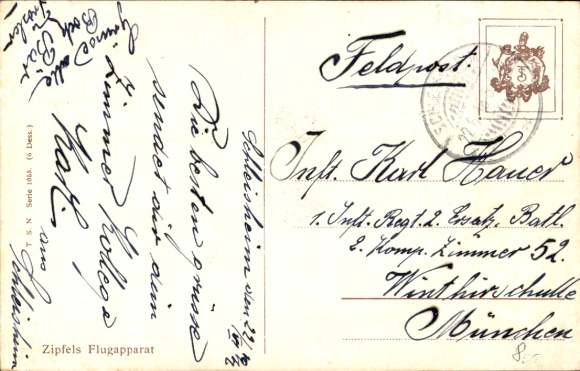 Feldpost.
Inft. Karl Hauer
1. Inft. Regt. 2. Ersatz. Batl.
2. Komp. Zimmer 52.
Winthirschulle
München
Schleisheim den
Die besten grüsse
sendet dir dein
Zimmer Kollege
Karl
aus
Schleisheim
T. S. N. Serie 1658. (6 Dess.)
Zipfels Flugapparat